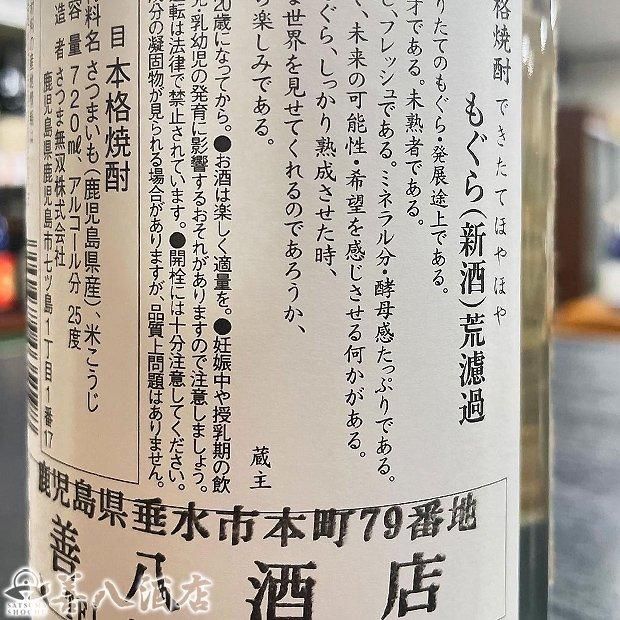 格焼酎 できたてほやほや
もぐら(新酒)荒濾過
りたてのもぐら・発展途上である。
オである。未熟者である。
し、フレッシュである。ミネラル分・酵母感たっぷりである。
て、未来の可能性・希望を感じさせる何かがある。
ぐら、しっかり熟成させた時、
な世界を見せてくれるのであろうか、
ら楽しみである。
蔵主
20歳になってから。●お酒は楽しく適量を。●妊娠中や授乳期の飲
児・乳幼児の発育に影響するおそれがありますので注意しましょう。
運転は法律で禁止されています。●開栓には十分注意してください。
分の凝固物が見られる場合がありますが、品質上問題はありません。
目 本格焼酎
料名 さつまいも(鹿児島県産)、米こうじ
容量 720mℓ、アルコール分 25度
造者 さつま無双株式会社
鹿児島県鹿児島市七ツ島1丁目1番17
鹿児島県垂水市本町79番地
善八酒店
善八酒店
SATSUMA
SHOCHU